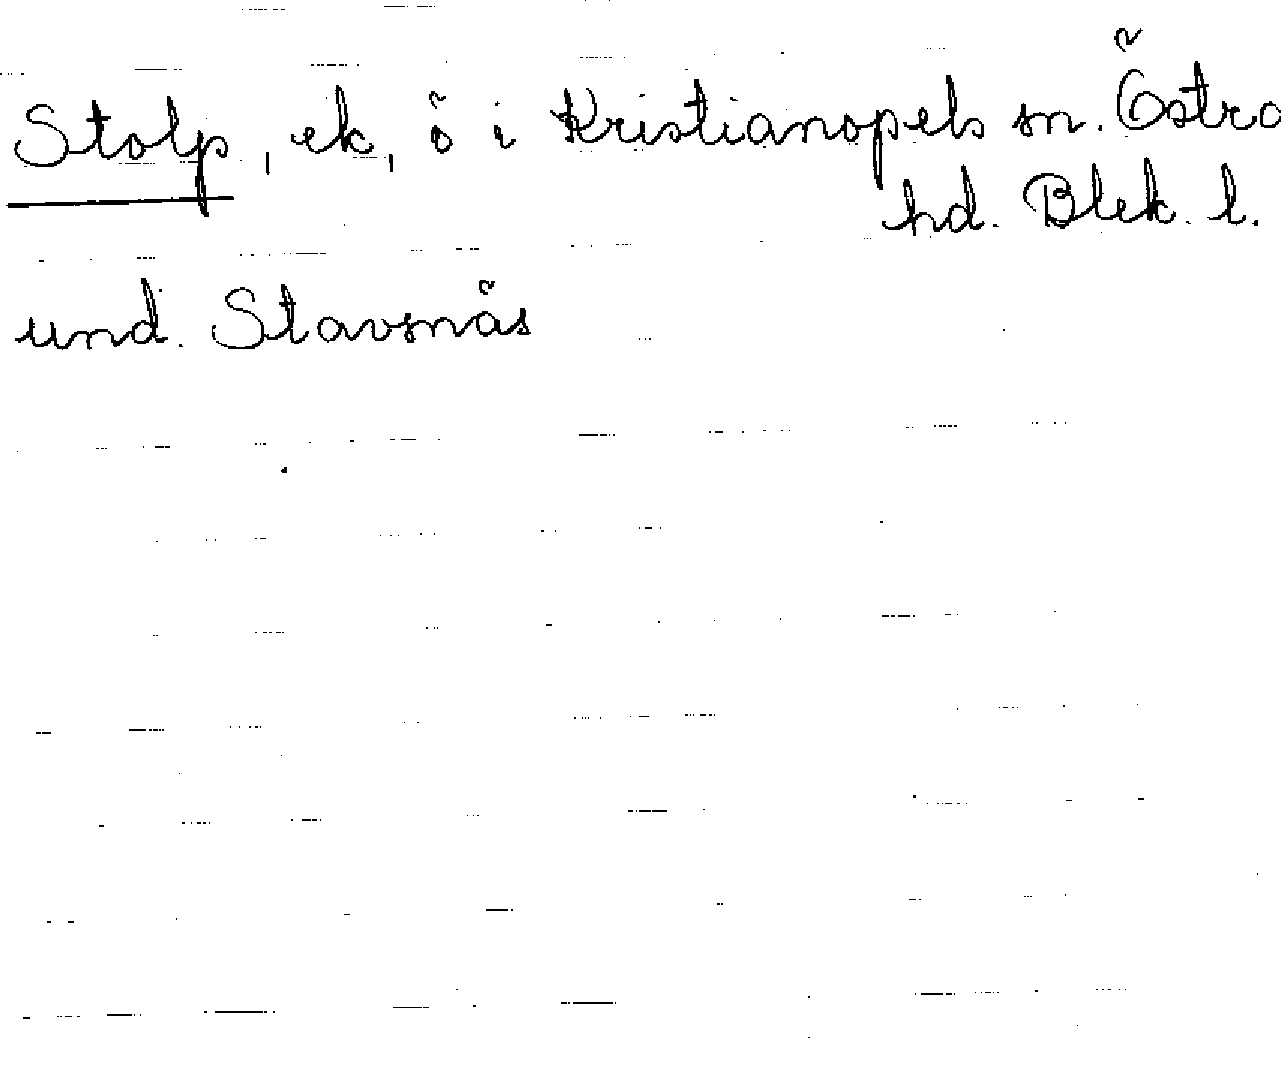 Stolp, ek, ö i Kristianopels sn. Östra
hd. Blek. l.
und. Stavsnäs